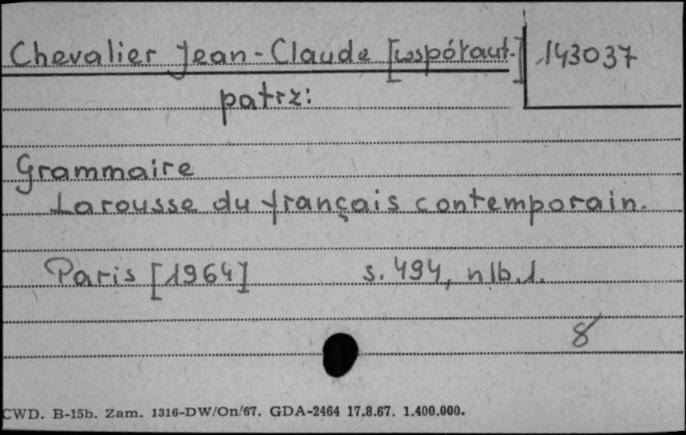 Chevalier Jean-Claude [współaut.]
143037
patrz:
Grammaire
Larousse du français contemporain.
Paris [1964] s. 494, nlb. 1.
8
CWD. B-15b. Zam. 1316-DW/On/67. GDA-2464 17.8.67. 1.400.000.